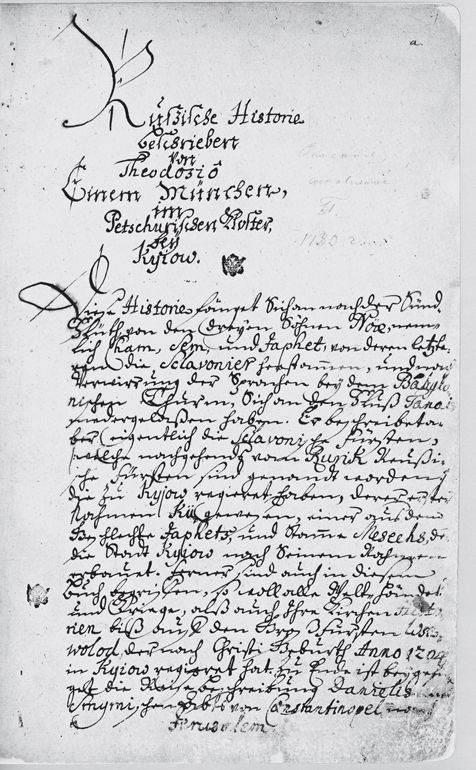 a.
Rußische Historie
beschrieben
von
Theodosio
Einem München,
im
Petschurischen Kloster,
bey
Kyiow.
Diese Historie fänget Sich an nach der Sünd
Fluth, von den dreyen Söhnen Noæ, nem
lich Cham, Sem, und Japhet, von deren letzte
ren die Sclavonier herstam̄en, und nach
Verwirrung der Sprachen bey dem Babylo
nischen Thurm, Sich an den Fluß Tanais
niedergelaßen haben. Er beschreibet a
ber eigentlich die Sclavonische Fürsten,
welche nachgehends vom Rurik Reußi
sche Fürsten sind genandt worden,
die zu Kyiow regieret haben, derer erster
Nahmen Kiÿ gewesen, einer aus dem
Geschlechte Japhets, und Stam̄e Mesechs, der
die Stadt Kyiow nach Seinem Nahmen
erbauet. Ferner sind auch in diesem
Buch begriffen, so woll alle Welt Händel
und Kriege, alß auch Ihre Kirchen
rien biß auf den Groß Fürsten
wolod, der nach Christi Geburth Anno
in Kyiow regieret hat. zu Ende ist beygefü
get die Reise beschreibung Danielis
schen Abts von Constantinopel nach
Jerusalem.